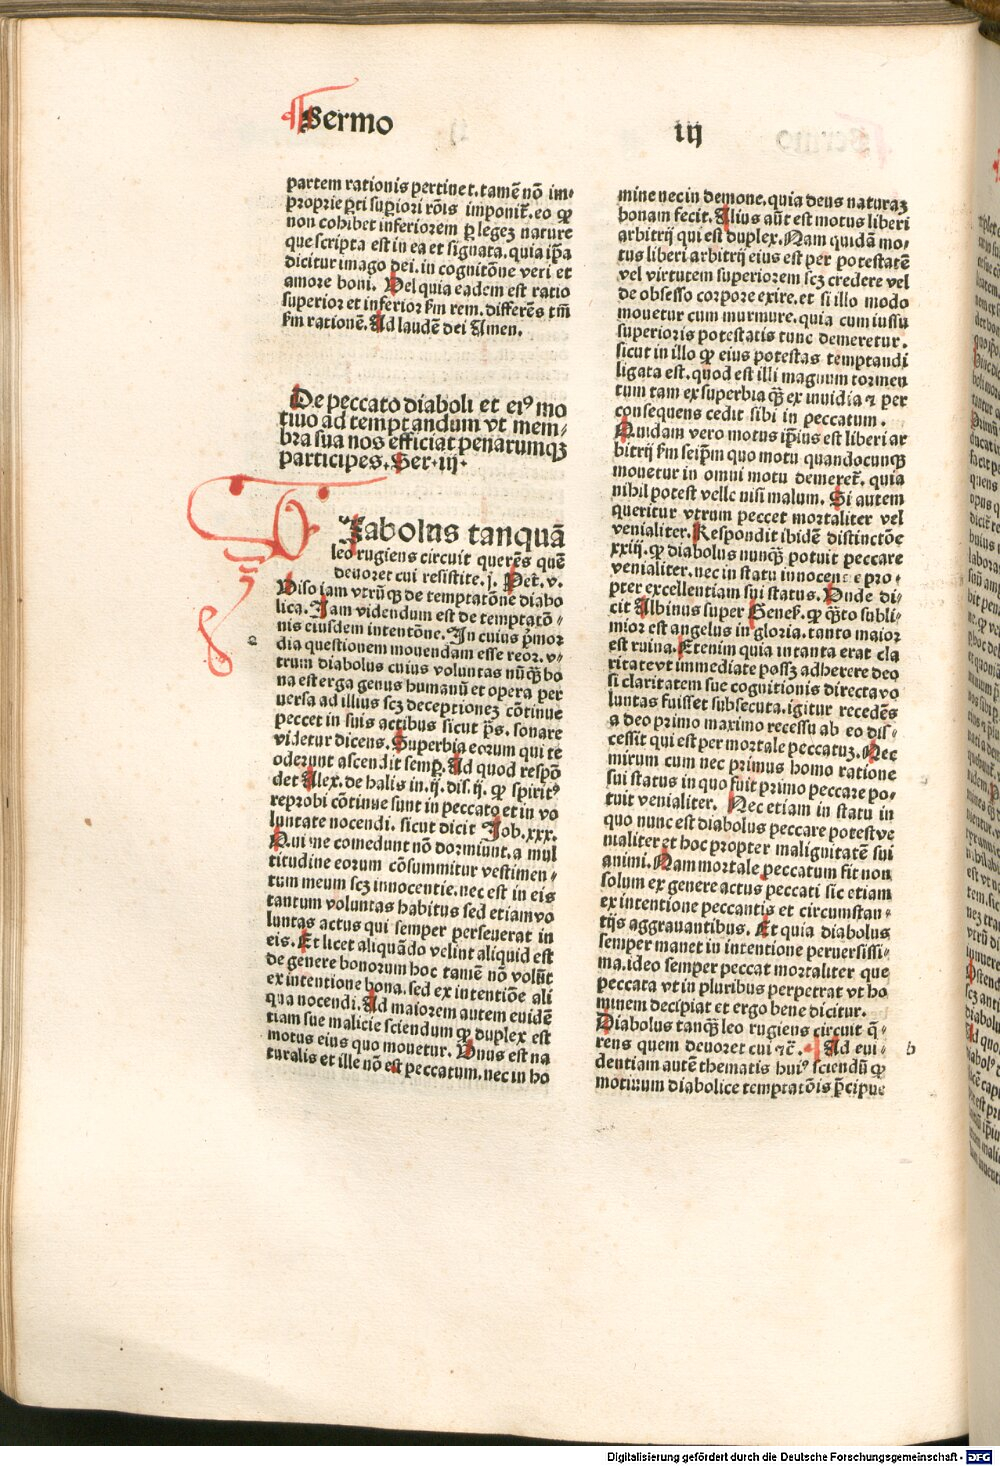 Sermo iij
partem rationis pertinet. tamē nō im⸗
proprie ꝑti supiori rōis imponit̄. eo ꝙ
non cohibet inferiorem ꝑ legez nature
que scripta est in ea et signata. quia ip̄a
dicitur imago dei. in cognitōne veri et
amore boni. Uel quia eadem est ratio
superior et inferior ẜm rem. differēs tm̄
ẜm rationē. Ad laudē dei Amen.
De peccato diaboli et eiꝰ mo
tiuo ad temptandum vt mem⸗
bra sua nos efficiat penarumqꝫ
participes. Ser. iij.
D Iabolus tanquā
leo rugiens circuit querēs quē
deuoret cui resistite. j. Pet. v.
Uiso iam vtrūqꝫ de temptatōne diabo
lica. Iam videndum est de temptatō⸗
nis eiusdem intentōne. In cuius pꝛmor
dia questionem mouendam esse reor. v⸗
trum diabolus cuius voluntas nūqꝫ bo
na est erga genus humanū et opera per
uersa ad illius scꝫ deceptionez cōtinue
peccet in suis actibus sicut p̄s. sonare
videtur dicens. Superbia eorum qui te
oderunt ascendit semꝑ. Ad quod respō
det Alex. de halis in. ij. dis. ij. ꝙ spiritꝰ
reprobi cōtinue sunt in peccato et in vo
luntate nocendi. sicut dicit Iob. xxx.
Qui me comedunt nō dormiunt. a mul
titudine eorum cōsummitur vestimen⸗
tum meum scꝫ innocentie. nec est in eis
tantum voluntas habitus sed etiam vo
luntas actus qui semper perseuerat in
eis. Et licet aliquādo velint aliquid est
de genere bonorum hoc tamē nō volūt
ex intentione bona. sed ex intentiōe ali
qua nocendi. Ad maiorem autem euidē
tiam sue malicie sciendum ꝙ duplex est
motus eius quo mouetur. Unus est na
turalis et ille nō est peccatum. nec in ho
mine nec in demone. quia deus naturaꝫ
bonam fecit. Alius aūt est motus liberi
arbitrij qui est duplex. Nam quidā mo⸗
tus liberi arbitrij eius est per potestatē
vel virtutem superiorem scꝫ credere vel
de obsesso corpore exire. et si illo modo
mouetur cum murmure. quia cum iussu
superioris potestatis tunc demeretur.
sicut in illo ꝙ eius potestas temptandi
ligata est. quod est illi magnum tormen
tum tam ex superbia qꝫ ex inuidia ⁊ per
consequens cedit sibi in peccatum.
Quidam vero motus ip̄ius est liberi ar
bitrij ẜm seip̄m quo motu quandocunqꝫ
mouetur in omni motu demeret̄. quia
nihil potest velle nisi malum. Si autem
queritur vtrum peccet mortaliter vel
venialiter. Respondit ibidē distinctōe
xxiij. ꝙ diabolus nunqꝫ potuit peccare
venialiter. nec in statu innocencie pro⸗
pter excellentiam sui status. Unde di⸗
cit Albinus super Genes. ꝙ qꝫto subli⸗
mior est angelus in gloria. tanto maior
est ruina. Etenim quia in tanta erat cla
ritate vt immediate possꝫ adherere deo
si claritatem sue cognitionis directa vo
luntas fuisset subsecuta. igitur recedēs
a deo primo maximo recessu ab eo dis⸗
cessit qui est per mortale peccatuꝫ. Nec
mirum cum nec primus homo ratione
sui status in quo fuit primo peccare po⸗
tuit venialiter. Nec etiam in statu in
quo nunc est diabolus peccare potest ve
nialiter et hoc propter malignitatē sui
animi. Nam mortale peccatum fit non
solum ex genere actus peccati sic etiam
ex intentione peccantis et circumstan⸗
tijs aggrauantibus. Et quia diabolus
semper manet in intentione peruersissi⸗
ma. ideo semper peccat mortaliter que
peccata vt in pluribus perpetrat vt ho
minem decipiat et ergo bene dicitur.
Diabolus tanqꝫ leo rugiens circuit q̄⸗
rens quem deuoret cui ⁊cē. Ad eui⸗
dentiam autē thematis huiꝰ sciendū ꝙ
motiuum diabolice temptatōis pꝛcipue
a
b
Digitalisierung gefördert durch die Deutsche Forschungsgemeinschaft - DFG